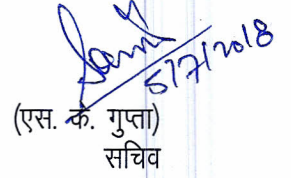 5/7/2018
(एस. के. गुप्ता)
सचिव